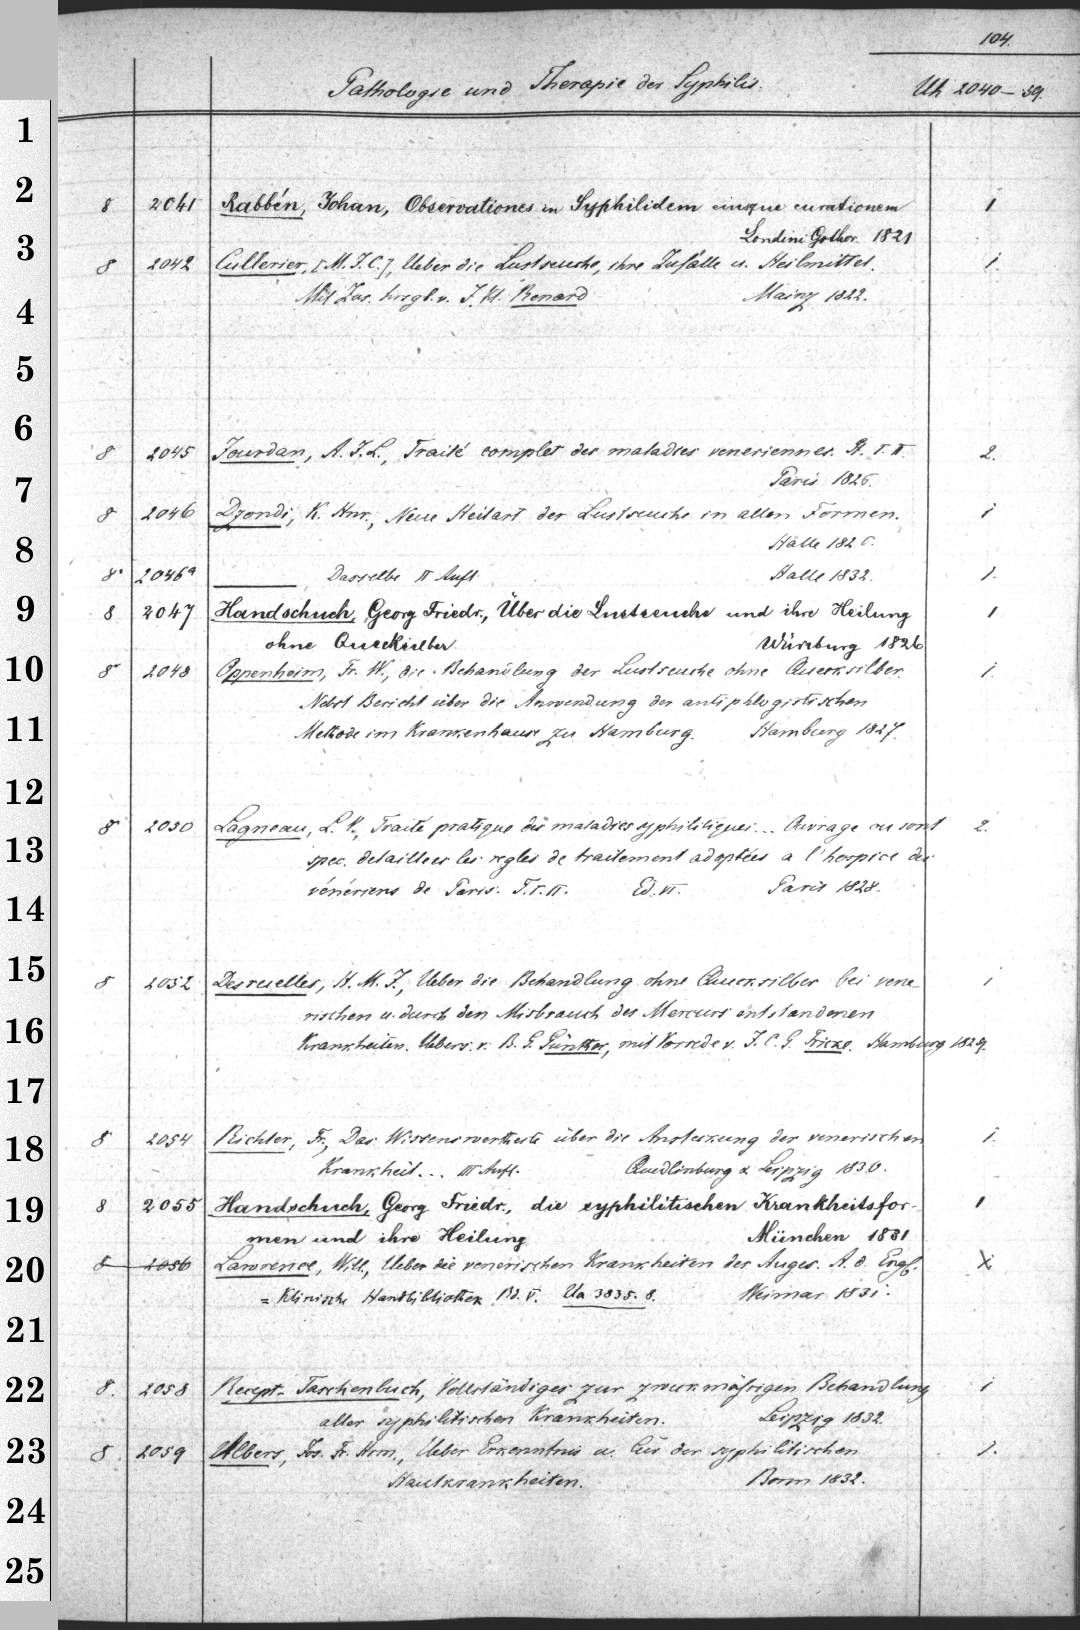 104.
Pathologie und Therapie der Syphilis. Uh 2040–59.
1
2
8 2041 Rabbén, Johan, Observationes in Syphilidem eiusque curationem 1
Londini Gothor. 1821
3
8 2042 Cullerier, [M. J. C.], Ueber die Lustseuche, ihre Zufälle u. Heilmittel. 1.
4
Mit Zus. hrsgb. v. J. Kl. Renard Mainz 1822.
5
6
8 2045 Jourdan, A. J. L., Traité complet des maladies veneriennes. P. I. II. 2.
7
Paris 1826.
8 2046 Dzondi, K. Hnr., Neue Heilart der Lustseuche in allen Formen. 1
8
Halle 182
8° 2046a ——— Dasselbe II Aufl. Halle 1832. 1.
9
8 2047 Handschuch, Georg Friedr., Über die Lustseuche und ihre Heilung 1
ohne Quecksilber Würzburg 1826
10
8 2048 Oppenheim, Fr. W., die Behandlung der Lustseuche ohne Quecksilber. 1.
Nebst Bericht über die Anwendung der antiphlogistischen
11
Methode im Krankenhause zu Hamburg. Hamburg 1827.
12
8 2050 Lagneau, L. V., Traité pratique des maladies syphilitiques... Ouvrage ou sont 2.
13
spec. detaillees les regles de traitement adoptées a l'hospice des
vénériens de Paris. T. I. II. Ed. VI. Paris 1828.
14
15
8 2052 Desruelles, H. M. J., Ueber die Behandlung ohne Quecksilber bei vene- 1
rischen u. durch den Misbrauch des Mercurs entstandenen
16
Krankheiten. Uebers. v. B. G. Günther, mit Vorrede v. J. C. G. Fricke. Hamburg 1829.
17
18
8 2054 Richter, Fr., Das Wissenswertheste über die Ansteckung der venerischen 1.
Krankheit... III Aufl. Quedlinburg & Leipzig 1830.
19
8 2055 Handschuch, Georg Friedr., die syphilitischen Krankheitsfor- 1
men und ihre Heilung München 1831
20
8 2056 Lawrence, Will., Ueber die venerischen Krankheiten des Auges. A. d. Engl. X
= Klinische Handbibliothek Bd. V. Ua 3835. 8. Weimar 1831.
21
22
8. 2058 Recept-Taschenbuch, Vollständiges zur zweckmäßigen Behandlung 1
aller syphilitischen Krankheiten. Leipzig 1832.
23
8. 2059 Albers, Jos. Fr. Hrm., Ueber Erkenntnis u. Cur der syphilitischen 1.
Hautkrankheiten. Bonn 1832.
24
25